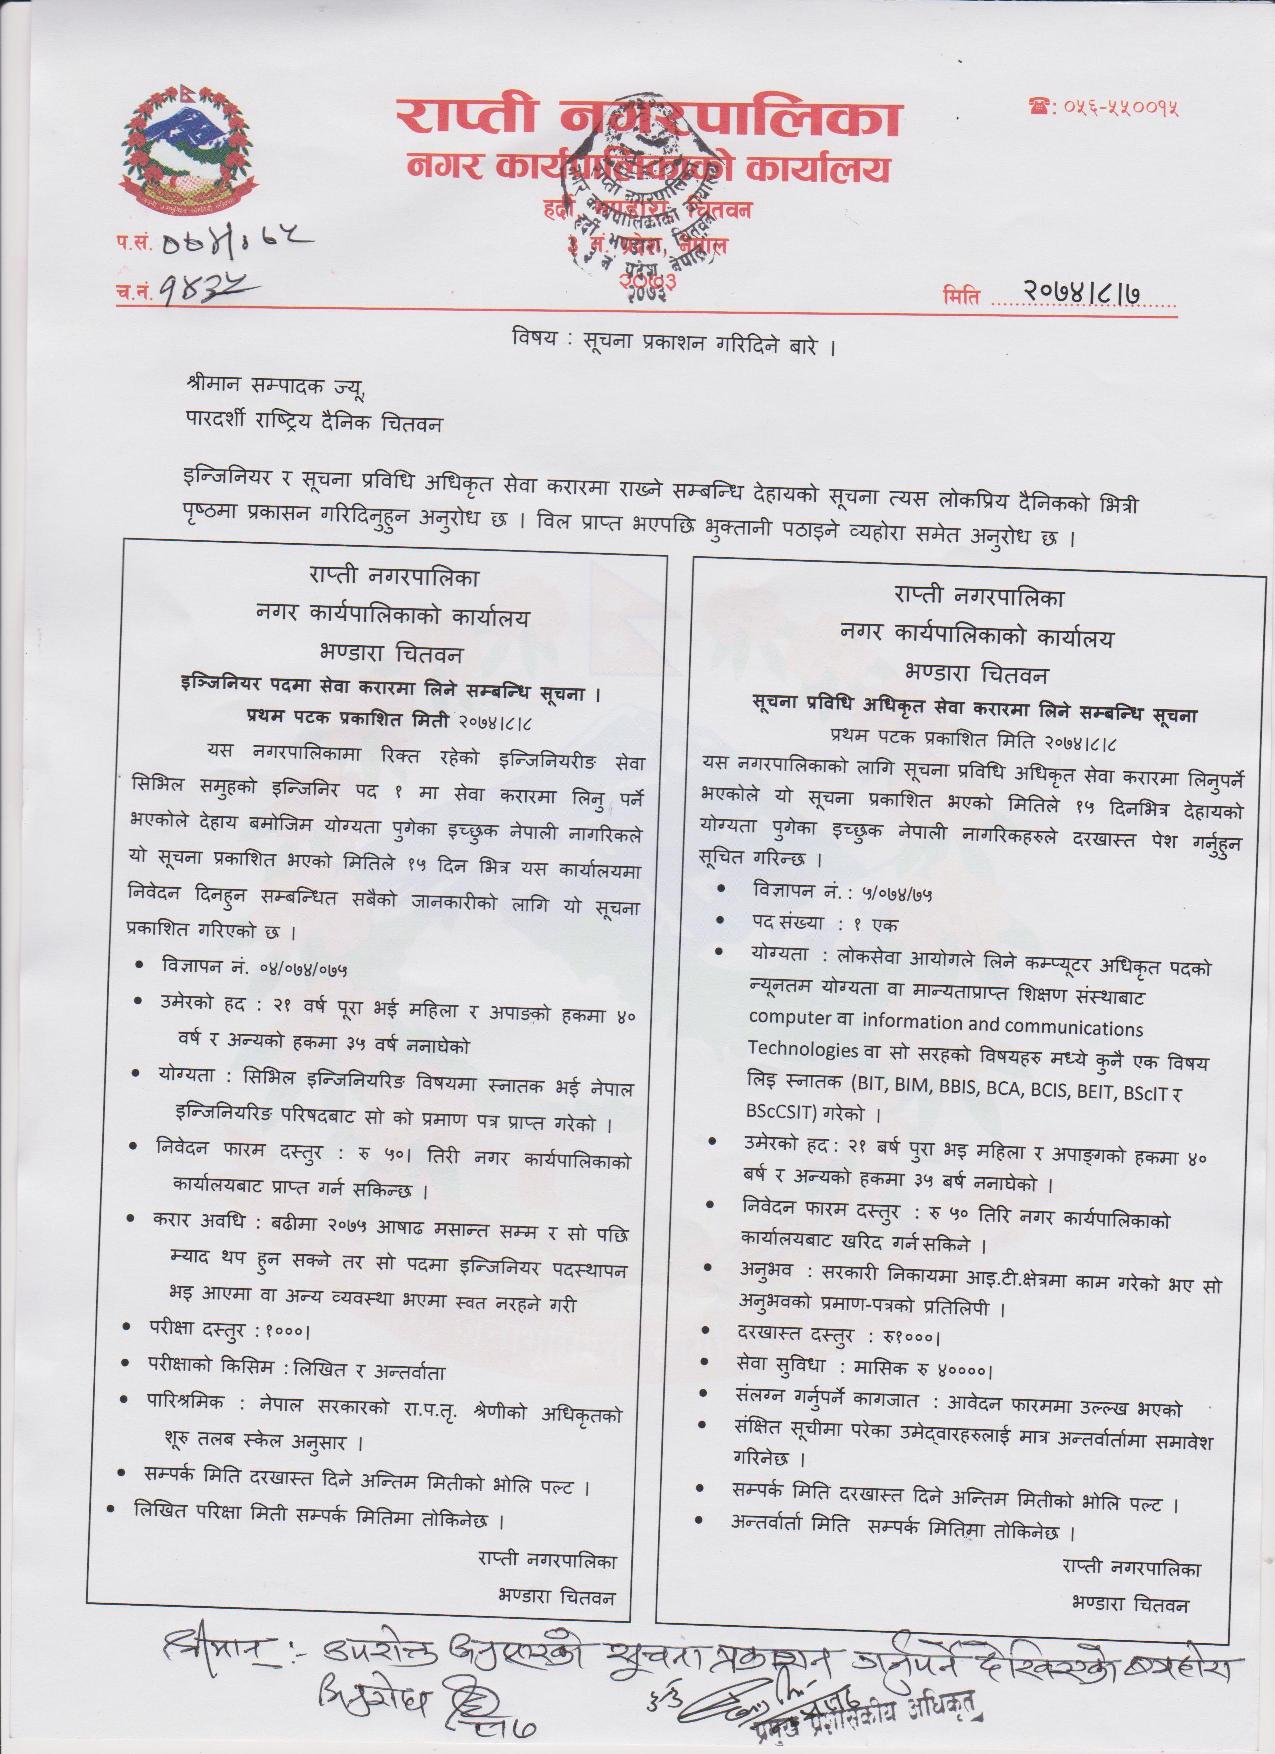 राप्ती नगरपालिका
नगर कार्यपालिकाको कार्यालय
हर्दी भण्डारा चितवन
३ नं. प्रदेश, नेपाल
२०७३
☎: ०५६-५५००१५
प.सं. ०७४।०७५
च.नं. १४३५
मिति २०७४।८।७
विषय : सूचना प्रकाशन गरिदिने बारे ।
श्रीमान सम्पादक ज्यू,
पारदर्शी राष्ट्रिय दैनिक चितवन
इन्जिनियर र सूचना प्रविधि अधिकृत सेवा करारमा राख्ने सम्बन्धि देहायको सूचना त्यस लोकप्रिय दैनिकको भित्री
पृष्ठमा प्रकासन गरिदिनुहुन अनुरोध छ । विल प्राप्त भएपछि भुक्तानी पठाइने व्यहोरा समेत अनुरोध छ ।
राप्ती नगरपालिका
नगर कार्यपालिकाको कार्यालय
भण्डारा चितवन
इञ्जिनियर पदमा सेवा करारमा लिने सम्बन्धि सूचना ।
प्रथम पटक प्रकाशित मिती २०७४।८।८
यस नगरपालिकामा रिक्त रहेको इन्जिनियरीङ सेवा
सिभिल समुहको इन्जिनिर पद १ मा सेवा करारमा लिनु पर्ने
भएकोले देहाय बमोजिम योग्यता पुगेका इच्छुक नेपाली नागरिकले
यो सूचना प्रकाशित भएको मितिले १५ दिन भित्र यस कार्यालयमा
निवेदन दिनहुन सम्बन्धित सबैको जानकारीको लागि यो सूचना
प्रकाशित गरिएको छ ।
• विज्ञापन नं. ०४/०७४/०७५
• उमेरको हद : २१ वर्ष पूरा भई महिला र अपाङको हकमा ४०
वर्ष र अन्यको हकमा ३५ वर्ष ननाघेको
• योग्यता : सिभिल इन्जिनियरिङ विषयमा स्नातक भई नेपाल
इन्जिनियरिङ परिषदबाट सो को प्रमाण पत्र प्राप्त गरेको ।
• निवेदन फारम दस्तुर : रु ५०। तिरी नगर कार्यपालिकाको
कार्यालयबाट प्राप्त गर्न सकिन्छ ।
• करार अवधि : बढीमा २०७५ आषाढ मसान्त सम्म र सो पछि
म्याद थप हुन सक्ने तर सो पदमा इन्जिनियर पदस्थापन
भइ आएमा वा अन्य व्यवस्था भएमा स्वत नरहने गरी
• परीक्षा दस्तुर : १०००।
• परीक्षाको किसिम : लिखित र अन्तर्वाता
• पारिश्रमिक : नेपाल सरकारको रा.प.तृ. श्रेणीको अधिकृतको
शूरु तलब स्केल अनुसार ।
• सम्पर्क मिति दरखास्त दिने अन्तिम मितीको भोलि पल्ट ।
• लिखित परिक्षा मिती सम्पर्क मितिमा तोकिनेछ ।
राप्ती नगरपालिका
भण्डारा चितवन
राप्ती नगरपालिका
नगर कार्यपालिकाको कार्यालय
भण्डारा चितवन
सूचना प्रविधि अधिकृत सेवा करारमा लिने सम्बन्धि सूचना
प्रथम पटक प्रकाशित मिति २०७४।८।८
यस नगरपालिकाको लागि सूचना प्रविधि अधिकृत सेवा करारमा लिनुपर्ने
भएकोले यो सूचना प्रकाशित भएको मितिले १५ दिनभित्र देहायको
योग्यता पुगेका इच्छुक नेपाली नागरिकहरुले दरखास्त पेश गर्नुहुन
सूचित गरिन्छ ।
• विज्ञापन नं. : ५/०७४/७५
• पद संख्या : १ एक
• योग्यता : लोकसेवा आयोगले लिने कम्प्यूटर अधिकृत पदको
न्यूनतम योग्यता वा मान्यताप्राप्त शिक्षण संस्थाबाट
computer वा information and communications
Technologies वा सो सरहको विषयहरु मध्ये कुनै एक विषय
लिइ स्नातक (BIT, BIM, BBIS, BCA, BCIS, BEIT, BScIT र
BScCSIT) गरेको ।
• उमेरको हद : २१ बर्ष पुरा भइ महिला र अपाङ्गको हकमा ४०
बर्ष र अन्यको हकमा ३५ बर्ष ननाघेको ।
• निवेदन फारम दस्तुर : रु ५० तिरि नगर कार्यपालिकाको
कार्यालयबाट खरिद गर्न सकिने ।
• अनुभव : सरकारी निकायमा आइ.टी.क्षेत्रमा काम गरेको भए सो
अनुभवको प्रमाण-पत्रको प्रतिलिपी ।
• दरखास्त दस्तुर : रु१०००।
• सेवा सुविधा : मासिक रु ४००००।
• संलग्न गर्नुपर्ने कागजात : आवेदन फारममा उल्ल्ख भएको
• संक्षित सूचीमा परेका उमेद्वारहरुलाई मात्र अन्तर्वार्तामा समावेश
गरिनेछ ।
• सम्पर्क मिति दरखास्त दिने अन्तिम मितीको भोलि पल्ट ।
• अन्तर्वार्ता मिति सम्पर्क मितिमा तोकिनेछ ।
राप्ती नगरपालिका
भण्डारा चितवन
श्रीमान :- उपरोक्त अनुसारको सूचना प्रकाशन गर्नुपर्ने देखिएको व्यहोरा
अनुरोध
प्रमुख प्रशासकीय अधिकृत